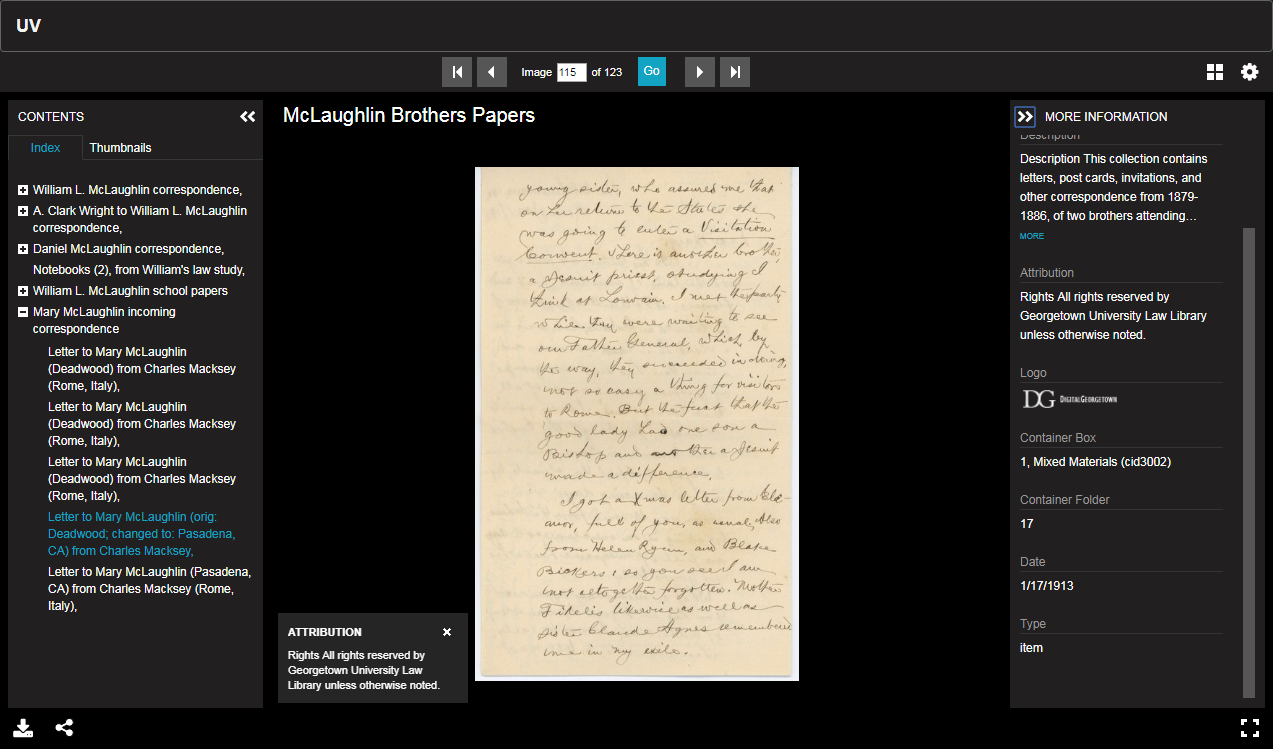 UV
Image 115 of 123 Go
CONTENTS
Index Thumbnails
William L. McLaughlin correspondence,
A. Clark Wright to William L. McLaughlin
correspondence,
Daniel McLaughlin correspondence,
Notebooks (2), from William's law study,
William L. McLaughlin school papers
Mary McLaughlin incoming
correspondence
Letter to Mary McLaughlin
(Deadwood) from Charles Macksey
(Rome, Italy),
Letter to Mary McLaughlin
(Deadwood) from Charles Macksey
(Rome, Italy),
Letter to Mary McLaughlin
(Deadwood) from Charles Macksey
(Rome, Italy),
Letter to Mary McLaughlin (orig:
Deadwood; changed to: Pasadena,
CA) from Charles Macksey,
Letter to Mary McLaughlin (Pasadena,
CA) from Charles Macksey (Rome,
Italy),
McLaughlin Brothers Papers
young sister, who assured me that
on her return to the States she
was going to enter a Visitation
Convent. There is another brother,
a Jesuit priest, studying I
think at Louvain. I met the party
while they were waiting to see
our Father General, which, by
the way, they succeeded in doing,
not so easy a thing for visitors
to Rome. But the fact that the
good lady had one son a
Bishop and another a Jesuit
made a difference.
I got a Xmas letter from Ele-
anor, full of you, as usual, also
from Helen Ryan, and Blake
Bickers, so you see I am
not altogether forgotten. Mother
Fidelis likewise as well as
Sister Claude Agnes remembered
me in my exile.
ATTRIBUTION
Rights All rights reserved by
Georgetown University Law
Library unless otherwise noted.
MORE INFORMATION
Description
Description This collection contains
letters, post cards, invitations, and
other correspondence from 1879-
1886, of two brothers attending...
MORE
Attribution
Rights All rights reserved by
Georgetown University Law Library
unless otherwise noted.
Logo
DG DIGITALGEORGETOWN
Container Box
1, Mixed Materials (cid3002)
Container Folder
17
Date
1/17/1913
Type
item